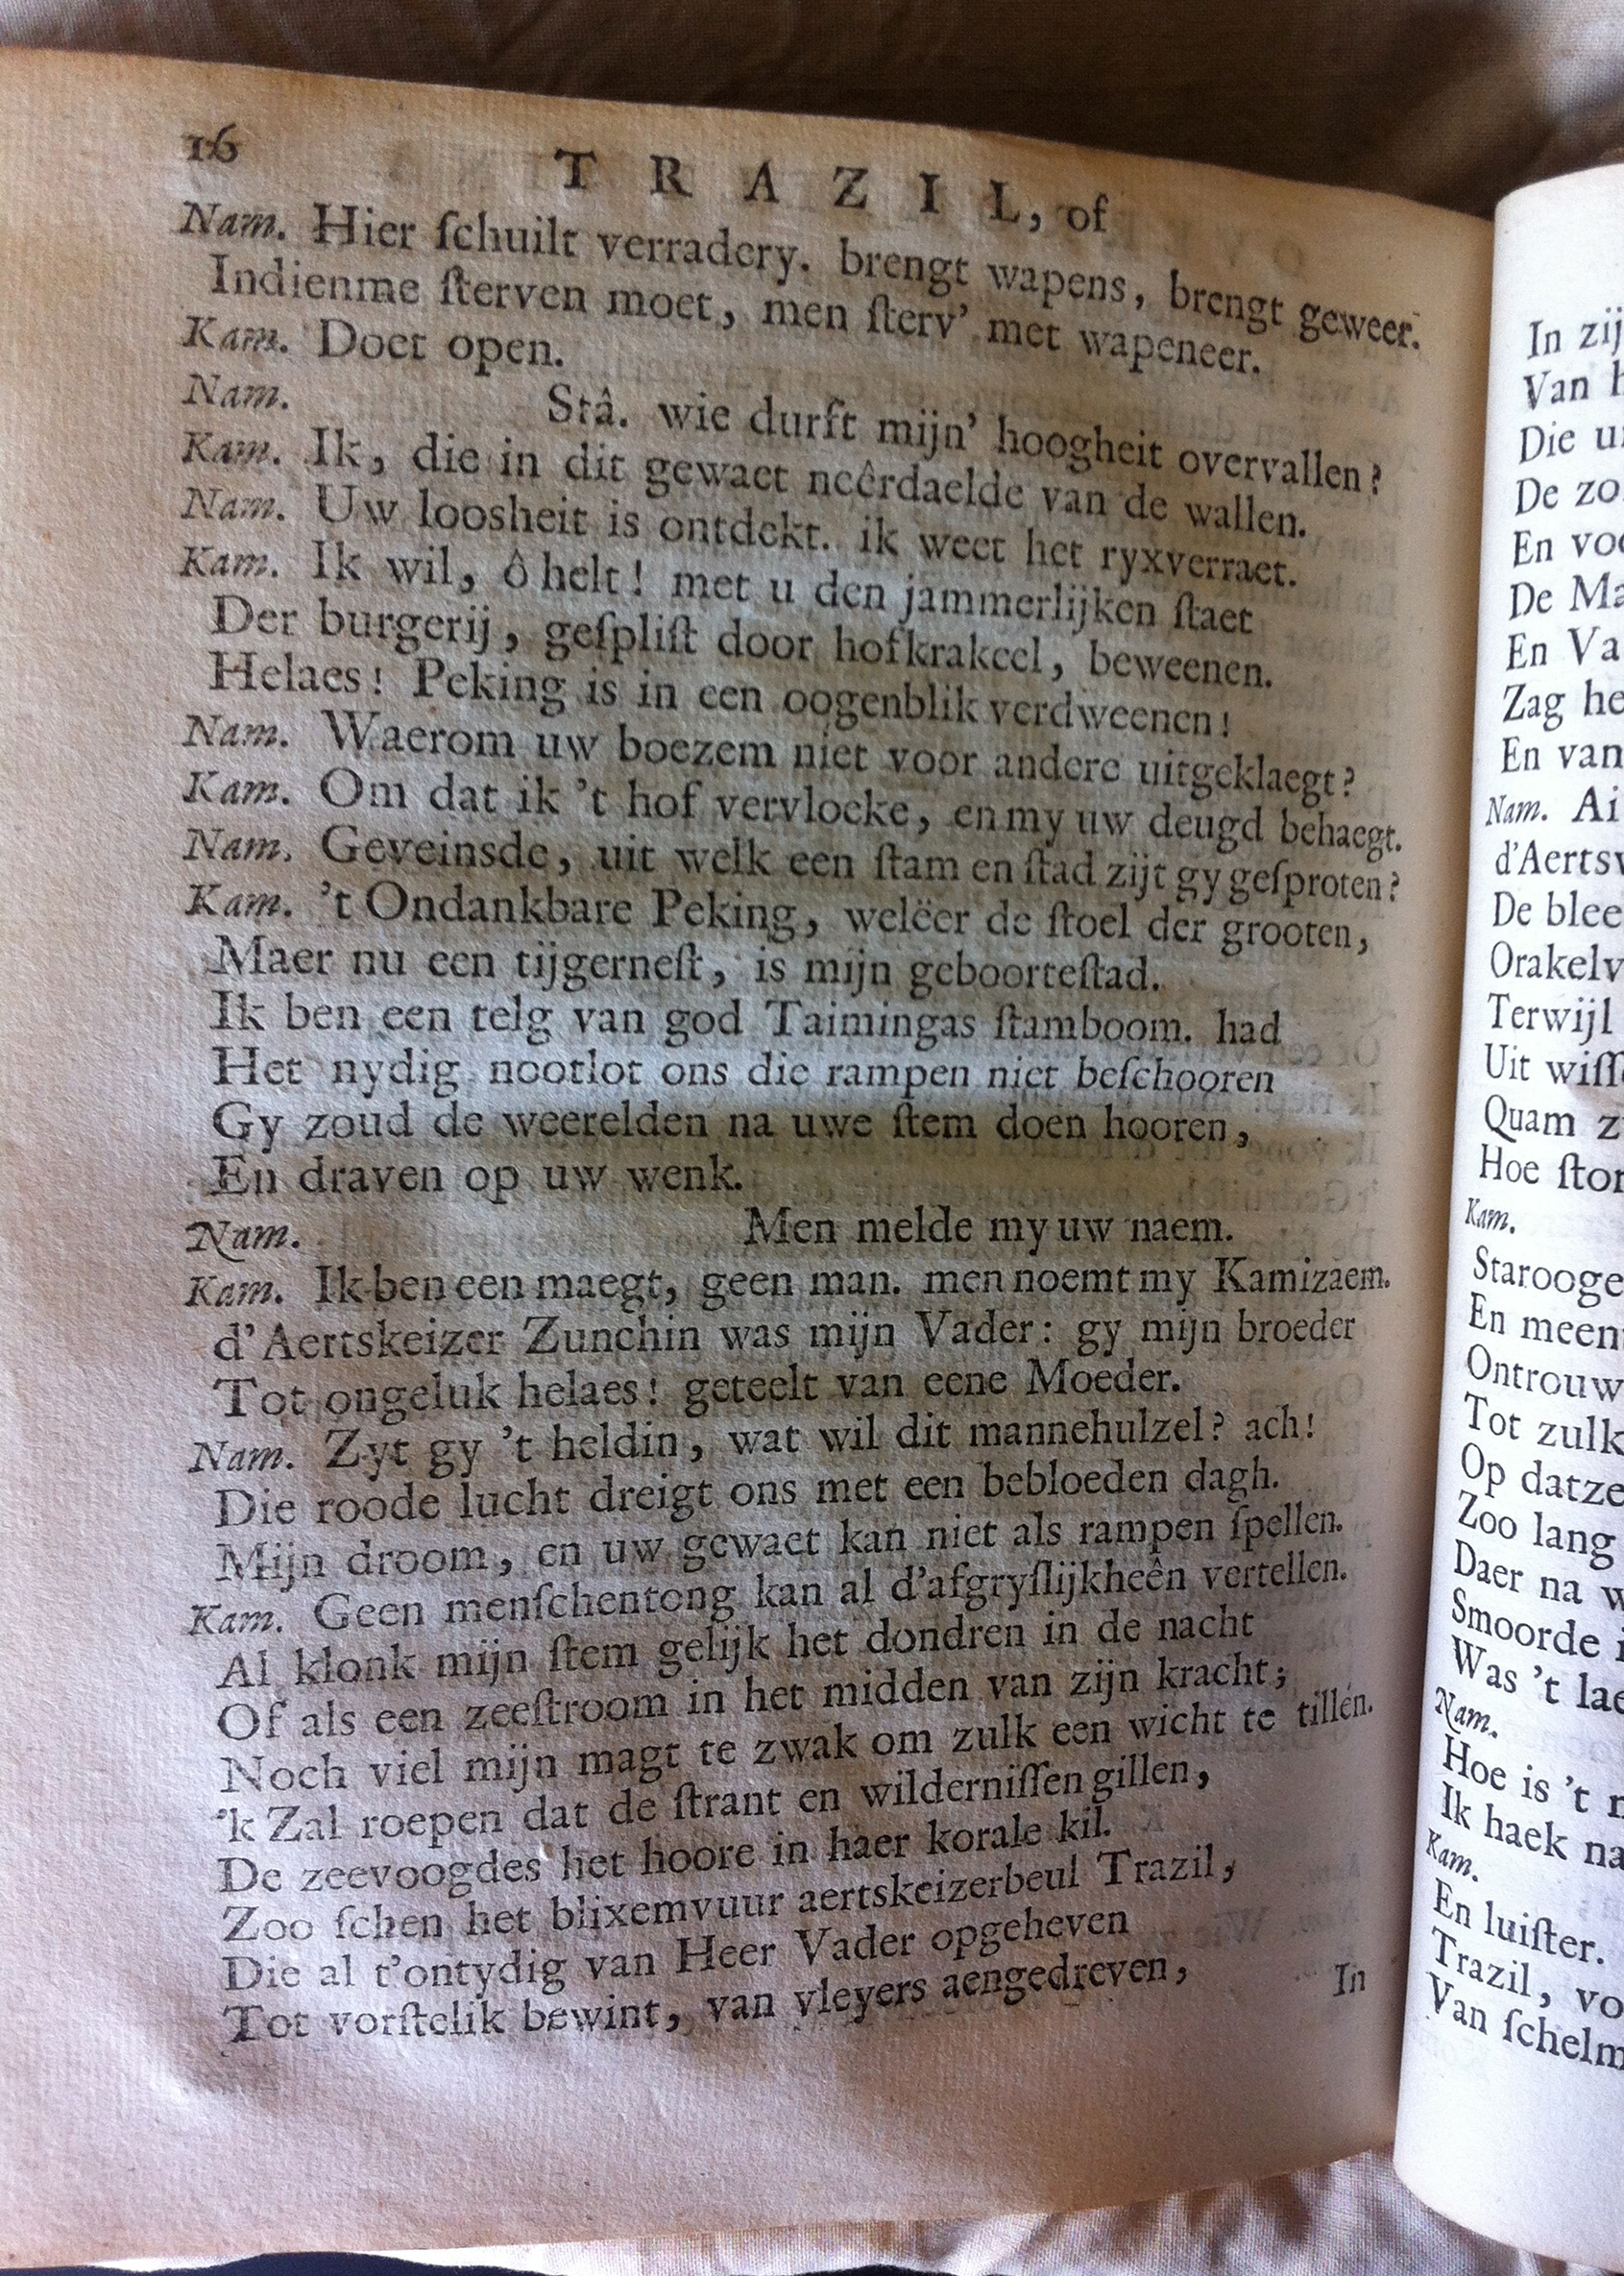 16
TRAZIL, of
Nam. Hier ſchuilt verradery. brengt wapens, brengt geweer.
Indienme ſterven moet, men ſterv' met wapeneer.
Kam. Doet open.
Nam. Stâ. wie durft mijn' hoogheit overvallen?
Kam. Ik, die in dit gewaet neêrdaelde van de wallen.
Nam. Uw loosheit is ontdekt. ik weet het ryxverraet.
Kam. Ik wil, ô helt! met u den jammerlijken ſtaet
Der burgerij, geſpliſt door hofkrakeel, beweenen.
Helaes! Peking is in een oogenblik verdweenen!
Nam. Waerom uw boezem niet voor andere uitgeklaegt?
Kam. Om dat ik 't hof vervloeke, en my uw deugd behaegt.
Nam. Geveinsde, uit welk een ſtam en ſtad zijt gy geſproten?
Kam. 't Ondankbare Peking, welëer de ſtoel der grooten,
Maer nu een tijgerneſt, is mijn geboorteſtad.
Ik ben een telg van god Taimingas ſtamboom. had
Het nydig nootlot ons die rampen niet beſchooren
Gy zoud de weerelden na uwe ſtem doen hooren,
En draven op uw wenk.
Nam. Men melde my uw naem.
Kam. Ik ben een maegt, geen man. men noemt my Kamizaem.
d'Aertskeizer Zunchin was mijn Vader: gy mijn broeder
Tot ongeluk helaes! geteelt van eene Moeder.
Nam. Zyt gy 't heldin, wat wil dit mannehulzel? ach!
Die roode lucht dreigt ons met een bebloeden dagh.
Mijn droom, en uw gewaet kan niet als rampen ſpellen.
Kam. Geen menſchentong kan al d'afgryſlijkheên vertellen.
Al klonk mijn ſtem gelijk het dondren in de nacht
Of als een zeeſtroom in het midden van zijn kracht;
Noch viel mijn magt te zwak om zulk een wicht te tillen.
'k Zal roepen dat de ſtrant en wilderniſſen gillen,
De zeevoogdes het hoore in haer korale kil.
Zoo ſchen het blixemvuur aertskeizerbeul Trazil,
Die al t'ontydig van Heer Vader opgeheven
Tot vorſtelik bewint, van vleyers aengedreven,
In
In zij
Van
Die
De zo
En voo
De Ma
En Va
Zag he
En van
Nam. Ai
d'Aertsv
De blee
Orakelv
Terwijl
Uit wiſſ
Quam z
Hoe ſtor
Kam.
Starooge
En meen
Ontrouw
Tot zulk
Op datze
Zoo lang
Daer na w
Smoorde
Was 't lae
Nam.
Hoe is 't
Ik haek na
Kam.
En luiſter.
Trazil, vo
Van ſchelm